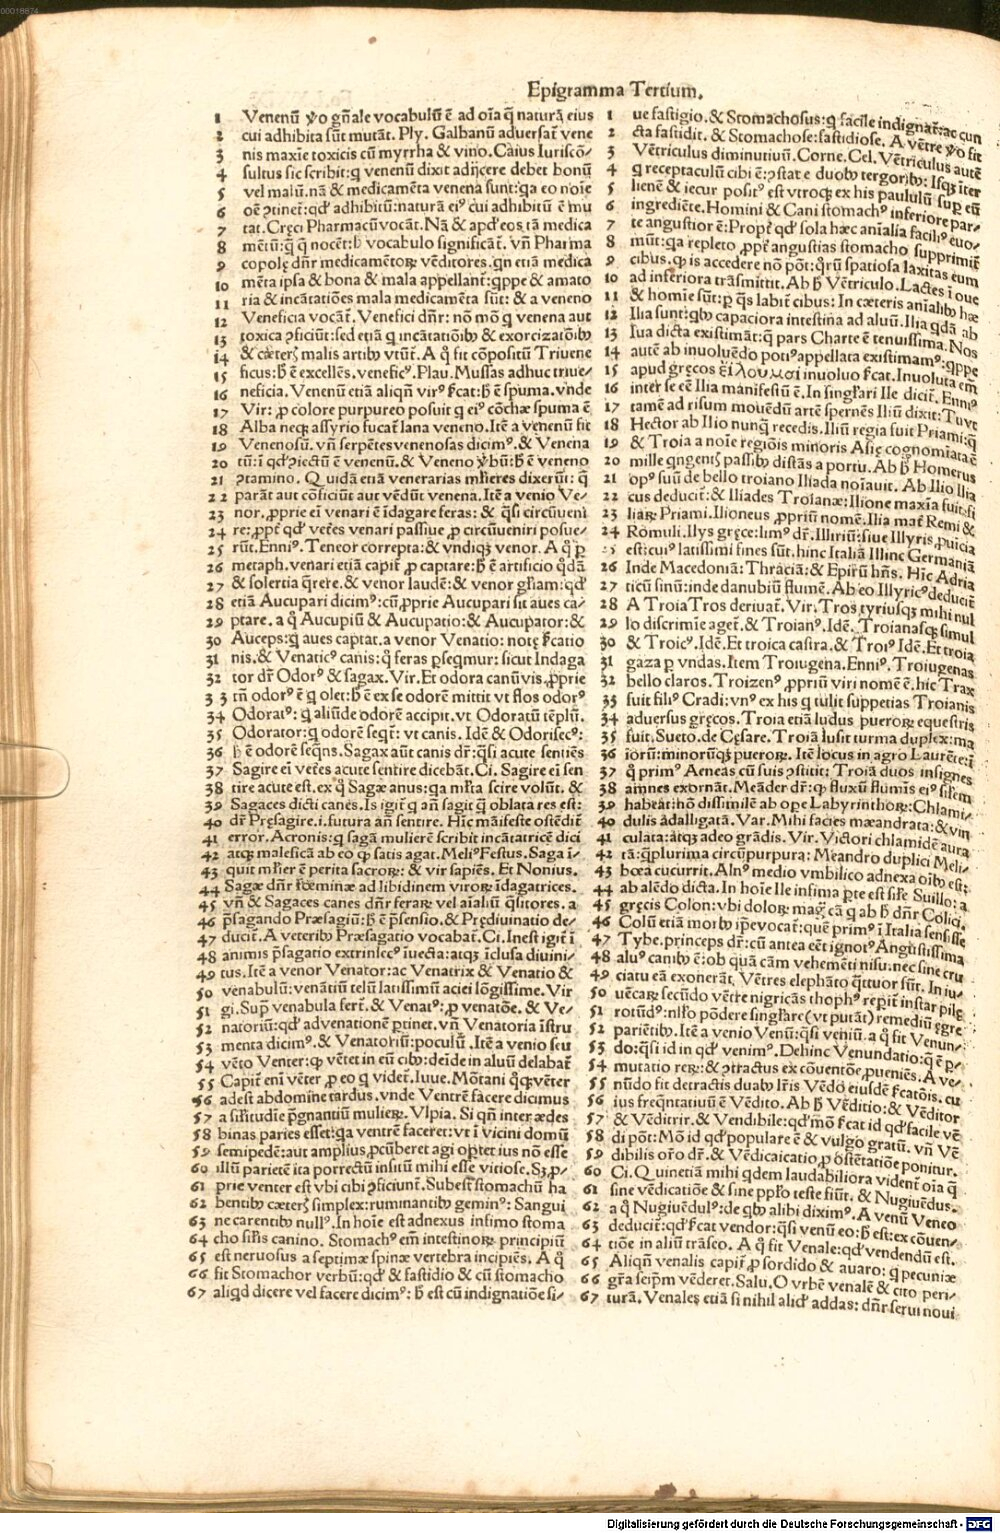 Epigramma Tertium.
1 Venenū ꝟo gn̄ale vocabulū ē ad oīa q̄ naturā eius
2 cui adhibita sūt mutāt. Ply. Galbanū aduersat᷑ vene
3 nis maxīe toxicis cū myrrha & vino. Caius Iuriscō⸗
4 sultus sic scribit: q venenū dixit adijcere debet bonū
5 vel malū. nā & medicamēta venena sunt: ga eo noīe
6 oē ꝯtinet: qd' adhibitū: naturā eiꝰ cui adhibitū ē mu
7 tat. Gręci Pharmacū vocāt. Nā & apd' eos tā medica
8 mētū: q̄ q nocēt: h̄ vocabulo significat᷑. vn̄ Pharma
9 copolę dn̄r medicamētoꝝ vēditores. qn etiā medica
10 mēta ipsa & bona & mala appellant᷑: qppe & amato
11 ria & incātatiōes mala medicamēta sūt: & a veneno
12 Veneficia vocāt᷑. Venefici dn̄r: nō mō q venena aut
13 toxica ꝯficiūt: sed etiā q incātatiōib⁹ & exorcizatōib⁹
14 & cæterꝭ malis artib⁹ vtūt᷑. A q̄ fit cōpositū Triuene
15 ficus: h̄ ē excellēs. veneficꝰ. Plau. Mussas adhuc triue⸗
16 neficia. Venenū etiā aliqn̄ virꝰ f̄cat: h̄ ē spuma. vnde
17 Vir: ꝓ colore purpureo posuit q eiꝰ cōchæ spuma ē
18 Alba neqꝫ assyrio fucat᷑ lana veneno. Itē a venenū fit
19 Venenosū. vn̄ serpētes venenosas dicimꝰ. & Venena
20 tū: i qd' ꝯiectū ē venenū. & Veneno ꝟbū: h̄ ē veneno
21 ꝯtamino. Quidā etiā venerarias mlieres dixerūt: q̄
22 parāt aut cōficiūt aut vēdūt venena. Itē a venio Ve⸗
23 nor. ꝓprie eī venari ē īdagare feras: & q̄si circūueni
24 re: ꝓpt᷑ qd' vet᷑es venari passiue ꝓ circūueniri posue⸗
25 rūt. Enniꝰ. Teneor correpta: & vndiqꝫ venor. A q̄ ꝑ
26 metaph. venari etiā capit᷑ ꝓ captare: h̄ ē artificio q̄dā
27 & solertia q̄rere. & venor laudē: & venor gr̄iam: qd'
28 etiā Aucupari dicimꝰ: cū ꝓprie Aucupari sit aues ca⸗
29 ptare. a q̄ Aucupiū & Aucupatio: & Aucupator: &
30 Auceps: q̄ aues captat. a venor Venatio: notę f̄catio
31 nis. & Venaticꝰ canis: q̄ feras ꝑseqmur: sicut Indaga
32 tor dr̄ Odorꝰ & sagax. Vir. Et odora canū vis. ꝓprie
33 tn̄ odorꝰ ē q̄ olet: h̄ ē ex se odorē mittit vt flos odorꝰ
34 Odoratꝰ: q̄ aliūde odorē accipit. vt Odoratū tēplū.
35 Odorator: q̄ odorē seqt᷑: vt canis. Idē & Odorisecꝰ:
36 h̄ ē odorē seqn̄s. Sagax aūt canis dr̄: q̄si acute sentiēs
37 Sagire eī vet᷑es acute sentire dicebāt. Ci. Sagire eī sen
38 tire acute est. ex q̄ Sagæ anus: ga mlta scire volūt. &
39 Sagaces dicti canes. Is igit᷑ q an̄ sagit q̄ oblata res est:
40 dr̄ Pręsagire. i. futura an̄ sentire. Hīc māifeste ostēdit᷑
41 error. Acronis: q sagā mulierē scribit incātatricē dici
42 atqꝫ maleficā ab eo ꝙ satis agat. Meliꝰ Festus. Saga ī⸗
43 quit mlier ē perita sacroꝝ: & vir sapiēs. Et Nonius.
44 Sagæ dn̄r fœminæ ad libidinem viroꝝ īdagatrices.
45 vn̄ & Sagaces canes dn̄r feraꝝ vel aīaliū q̄sitores. a
46 p̄sagando Præsagiū: h̄ ē p̄sensio. & Prędiuinatio de⸗
47 ducit᷑. A veterib⁹ Præsagatio vocabat᷑. Ci. Inest igit᷑ ī
48 animis p̄sagatio extrīsecꝰ īuecta: atqꝫ īclusa diuini⸗
49 tus. Itē a venor Venator: ac Venatrix & Venatio &
50 venabulū: venātiū telū latissimū aciei lōgissime. Vir
51 gi. Sup̄ venabula fert᷑. & Venatꝰ: ꝓ venatōe. & Ve⸗
52 natoriū: qd' ad venationē ꝑtinet. vn̄ Venatoria īstru
53 menta dicimꝰ. & Venatoriū: poculū. Itē a venio seu
54 vēto Venter: ꝙ vētet in eū cib⁹: deīde in aluū delabat᷑
55 Capit᷑ enī vēter ꝓ eo q videt᷑. Iuue. Mōtani q̄qꝫ vēter
56 adest abdomine tardus. vnde Ventrē facere dicimus
57 a silitudīe p̄gnantiū mulieꝝ. Vlpia. Si qn̄ inter ædes
58 binas paries esset: ga ventrē faceret: vt ī vicini domū
59 semipedē: aut amplius ꝓcūberet agi oꝑtet ius nō esse
60 illū parietē ita porrectū insitū mihi esse vitiose. Sꝫ ꝓ⸗
61 prie venter est vbi cibi ꝯficiunt᷑. Subest stomachū ha
62 bentib⁹ cæterꝭ simplex: ruminantib⁹ geminꝰ: Sangui
63 ne carentib⁹ nullꝰ. In hoīe est adnexus infimo stoma
64 cho silis canino. Stomachꝰ em̄ intestinoꝝ principiū
65 est neruosus a septimæ spinæ vertebra incipiēs. A q̄
66 fit Stomachor verbū: qd' & fastidio & cū stomacho
67 aliqd dicere vel facere dicimꝰ: h̄ est cū indignatiōe si⸗
1 ue fastigio. & Stomachosus: q facile indignat᷑: ac cun
2 cta fastidit. & Stomachose: fastidiose. A vētre ꝟo fit
3 Vētriculus diminutiuū. Corne. Cel. Vētriculus autē
4 q receptaculū cibi ē: ꝯstat e duob⁹ tergorib⁹: Isqꝫ īter
5 lienē & iecur positꝰ est vtroqꝫ ex his paululū sup eū
6 ingrediēte. Homini & Cani stomachꝰ inferiore par⸗
7 te angustior ē: Propt᷑ qd' sola hæc aīalia faciliꝰ euo⸗
8 mūt: ga repleto ꝓpt᷑ angustias stomacho supprimit᷑
9 cibus. ꝙ is accedere nō pōt: q̄rū spatiosa laxitas eum
10 ad inferiora trāsmittit. Ab h̄ Vētriculo. Lactes ī oue
11 & homīe sūt: ꝑ q̄s labit᷑ cibus: In cæteris aīalib⁹ hæ
12 Ilia sunt: qb⁹ capaciora intestina ad aluū. Ilia qdā ab
13 Iua dicta existimāt: q̄ pars Charte ē tenuissima. Nos
14 autē ab inuoluēdo potiꝰ appellata existimamꝰ: qppe
15 apud gręcos εἰλουμαι inuoluo f̄cat. Inuoluta em̄
16 inter se eē Ilia manifestū ē. In singl'ari Ile dicit᷑. Enniꝰ
17 tamē ad risum mouēdū artē spernēs Iliū dixit: Tuvt
18 Hector ab Ilio nunq̄ recedis. Iliū regia fuit Priami: q̄
19 & Troia a noīe regiōis minoris Asię cognomiata ē
20 mille qngentꝭ passib⁹ distās a portu. Ab h̄ Homerus
21 opꝰ suū de bello troiano Iliada noīauit. Ab Ilio Ilia
22 cus deducit᷑: & Iliades Troianæ: Ilione maxīa fuit: fi
23 liaꝝ Priami. Ilioneus ꝓpriū nomē. Ilia mat᷑ Remi &
24 Romuli. Ilys gręce: limꝰ dr̄. Illiriū: siue Illyris ꝓuīcia
25 est: cuiꝰ latissimi fines sūt. hinc Italiā Illinc Germaniā
26 Inde Macedoniā: Thraciā: & Epirū hn̄s. Hīc Adria
27 ticū sinū: inde danubiū flumē. Ab eo Illyricꝰ deducit᷑
28 A Troia Tros deriuat᷑. Vir. Tros tyriusqꝫ mihi nul
29 lo discrimīe aget᷑. & Troianꝰ. Idē. Troianasqꝫ simul
30 & Troicꝰ. Idē. Et troica castra. & Troiꝰ Idē. Et troia
31 gaza ꝑ vndas. Item Troiugena. Enniꝰ. Troiugenas
32 bello claros. Troizenꝰ ꝓpriū viri nomē ē. hic Trax
33 fuit filiꝰ Cradi: vnꝰ ex his q tulit suppetias Troianis
34 aduersus gręcos. Troia etiā ludus pueroꝝ equestris
35 fuit. Sueto. de Cęsare. Troiā lusit turma duplex: ma
36 ioꝝ: minorūqꝫ pueroꝝ. Itē locus in agro Laurēte: ī
37 q̄ primꝰ Aeneas cū suis ꝯstitit: Troiā duos insignes
38 amnes exornāt. Meāder dr̄: ꝙ fluxū flumīs eiꝰ silem
39 habeāt: hō dissimilē ab ope Labyrinthoꝝ: Chlami⸗
40 dulis ādalligatā. Var. Mihi facies mæandrata: & vin
41 culata: atqꝫ adeo grādis. Vir. Victori chlamidē aura
42 tā: q̄plurima circū purpura: Meandro duplici Meli⸗
43 bœa cucurrit. Alnꝰ medio vmbilico adnexa oīb⁹ est:
44 ab alēdo dicta. In hoīe Ile infima ꝑte est silis Suillo: a
45 gręcis Colon: vbi doloꝝ mag᷑ cā q̄ ab h̄ dn̄r Colici.
46 Colū etiā morb⁹ ip̄e vocat᷑: quē primꝰ ī Italia sensisse
47 Tybe. princeps dr̄: cū antea eēt ignotꝰ Angustissima
48 aluꝰ canib⁹ ē: ob quā cām vehemēti nisu: nec sine cru
49 ciatu eā exonerāt. Vētres elephāto q̄ttuor sūt. In iu⸗
50 uēcaꝝ secūdo vētre nigricās thophꝰ reꝑit᷑ instar pilę
51 rotūdꝰ: nl'lo pōdere singl'are (vt putāt) remediū ęgre
52 pariētib⁹. Itē a venio Venū: q̄si veniū. a q̄ fit Venun⸗
53 do: q̄si id in qd' venimꝰ. Dehinc Venundatio: q̄ ē ꝑ⸗
54 mutatio reꝝ: & ꝯtractus ex cōuentōe ꝓueniēs. A ve⸗
55 nūdo fit detractis duab⁹ lris Vēdo eiusdē f̄catōis. cu
56 ius freq̄ntatiuū ē Vēdito. Ab h̄ Vēditio: & Vēditor
57 & Vēditrir. & Vendibile: qd' mō f̄cat id qd' facile vē
58 di pōt: Mō id qd' populare ē & vulgo gratū. vn̄ Vē
59 dibilis orō dr̄. & Vēdicaicatio ꝓ ostētatiōe ponitur.
60 Ci. Quinetiā mihi qdem laudabiliora vident᷑ oīa q̄
61 sine vēdicatiōe & sine pplo teste fiūt. & Nugiuēdus.
62 a q̄ Nugiuēdulꝰ: de qb⁹ alibi diximꝰ. A venū Veneo
63 deducit᷑: qd' f̄cat vendor: q̄si venū eo: h̄ est: ex cōuen⸗
64 tiōe in aliū trāseo. A q̄ fit Venale: qd' vendendū est.
65 Aliqn̄ venalis capit᷑ ꝓ sordido & auaro: q pecuniæ
66 gr̄a seip̄m vēderet. Salu. O vrbē venalē & cito peri⸗
67 turā. Venales etiā si nihil alid' addas: dn̄r serui noui
00018674
Digitalisierung gefördert durch die Deutsche Forschungsgemeinschaft - DFG